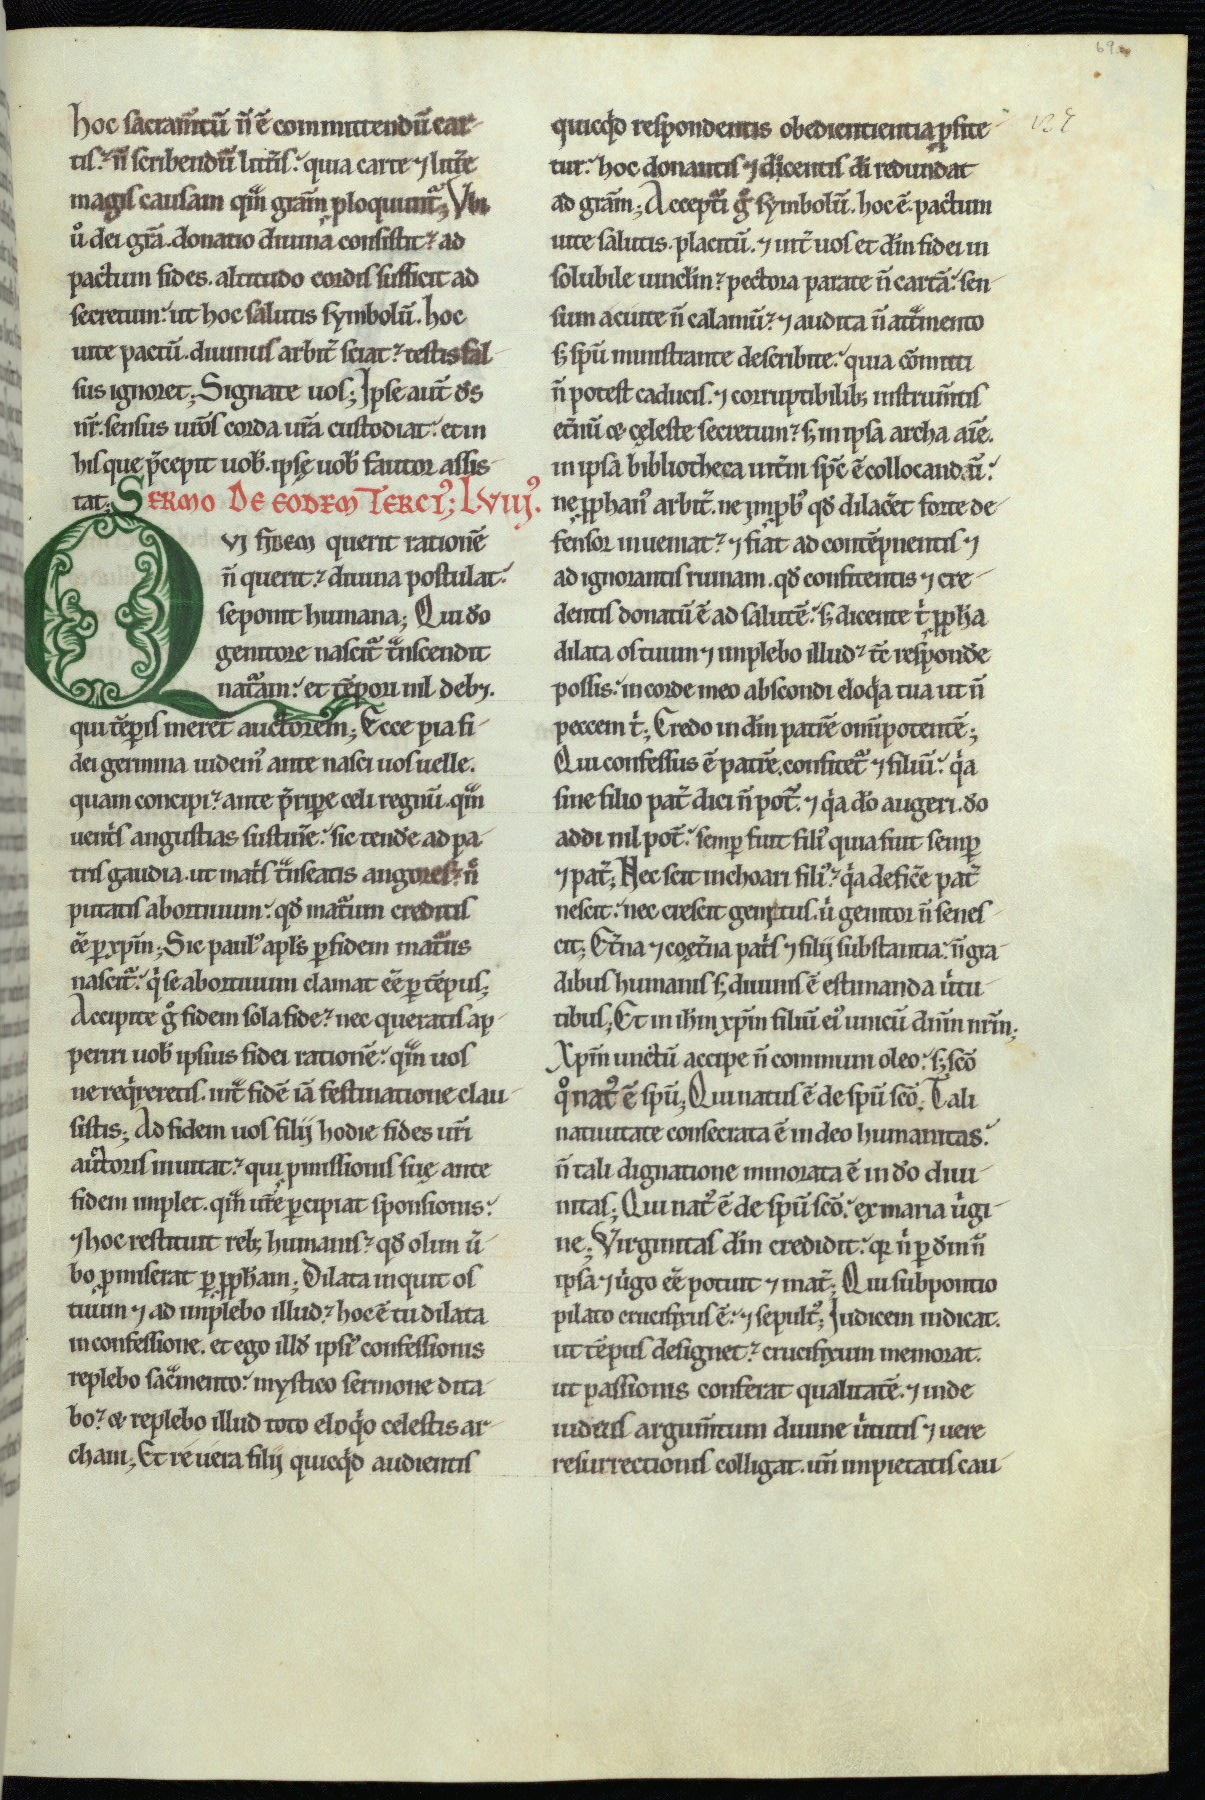 69
127
hoc sacram̄tū n̄ ē committendū car-
tis. n̄ scribendū litt̄is. quia carte ⁊ litt̄e
magis causam qm̄ grām ꝓloquunt̄; Vbi
ů dei grā. donatio diuina consistit. ad
pactum fides. altitudo cordis sufficit ad
secretum. ut hoc salutis symbolū. hoc
uite pactū. diuinus arbit̄ sciat. testis fal-
sus ignoret; Signate uos; Ipse aut̄ ds̄
nr̄. sensus ur̄os corda ur̄a custodiat. et in
his que p̄cepit uob̄. ipsę uob̄ fautor assis-
tat; SERMO DE EODEM TERCIꝰ; LVIIIꝰ.
QVI FIDEM querit rationē
n̄ querit. diuina postulat.
seponit humana; Qui do
genitore nascit̄ t̄nscendit
nat̄am. et tēpori nil deb⁊.
qui tēpis meret̄ auctorem; Ecce pia fi-
dei germina uidemꝰ ante nasci uos uelle.
quam concipi. ante p̄ripe celi regnū. qm̄
uent̄s angustias sustin̄e. sic tende ad pa-
tris gaudia. ut mat̄s t̄nseatis angores. n̄
putatis abortiuum. qd̄ mat̄um creditis
eē ꝑ xp̄m; Sic paulꝰ apl̄s ꝑ fidem mat̄us
nascit̄. q̇ se abortiuum clamat eē ꝑ tēpus;
Accipite g̊ fidem sola fide. nec queratis ap-
periri uob̄ ipsius fidei rationē. qm̄ uos
ne req̇reretis. int̄ fidē iā festinatione clau-
sistis; Ad fidem uos filij hodie fides ur̄i
auctoris inuitat. qui ꝓmissionis suę ante
fidem implet. qm̄ ur̄e ꝑcipiat sponsionis.
⁊ hoc restituit reb; humanis. qd̄ olim ū
bo ꝓmiserat ꝑ ꝓph̄am; Dilata inquit os
tuum ⁊ ad implebo illud. hoc ē tu dilata
in confessione. et ego illd̄ ipsiꝰ confessionis
replebo sac̄mento. mystico sermone dita-
bo. & replebo illud toto eloq̇o celestis ar-
cham; Et re uera filij quicq̇d audientis
quicq̇d respondentis obedientientia ꝓfite-
tur. hoc donantis ⁊ dicentis di redundat
ad grām; Accept̄i g̊ symbolū. hoc ē. pactum
uite salutis. placitū. ⁊ int̄ uos et dm̄ fidei in
solubile uinclm̄. pectora parate n̄ cartā. sen-
sum acuite n̄ calamū. ⁊ audita n̄ at̄mento
s; spū ministrante describite. quia cōmitti
n̄ potest caducis. ⁊ corruptibilib; instrum̄tis
et̄nū & cęleste secretum. s; in ipsa archa aīe.
in ipsa bibliotheca int̄in spc̄ ē collocandū.
ne ꝓphanꝰ arbit̄. ne improbꝰ qd̄ dilac̄et forte de-
fensor inueniat. ⁊ fiat ad contēpnentis ⁊
ad ignorantis ruinam. qd̄ confitentis ⁊ cre-
dentis donatū ē ad salutē. s; dicente t̄ ꝓph̄a
dilata os tuum ⁊ implebo illud. tc̄ respond̄e
possis. in corde meo abscondi eloq̇a tua ut n̄
peccem t̄; Credo in dm̄ patrē om̄ipotentē;
Qui confessus ē patrē. confitet̄ ⁊ filiū. q̇a
sine filio pat̄ dici n̄ pot̄. ⁊ q̇a do augeri. do
addi nil pot̄. semꝑ fuit filiꝰ quia fuit semꝑ
⁊ pat̄; Nec scit inchoari filiꝰ. q̇a defic̄e pat̄
nescit. nec crescit genitus. ů genitor n̄ senes-
cit; Et̄na ⁊ coęt̄na pat̄s ⁊ filij substantia. n̄ gra-
dibus humanis s; diuinis ē estimanda ůtu-
tibus; Et in ih̄m xp̄m filiū eiꝰ unicū dnm̄ nrm̄;
Xp̄m unctū accipe n̄ communi oleo. s; scō
q̊ natꝰ ē spū; Qui natus ē de spū scō; Tali
natiuitate consecrata ē in deo humanitas.
n̄ tali dignatione minorata ē in do diui-
nitas; Qui natꝰ ē de spū scō. ex maria ůgi-
ne; Virginitas dm̄ credidit. q̄ n̄ ꝑ dm̄ n̊
ipsa ⁊ ůgo eē potuit ⁊ mat̄; Qui sub pontio
pilato crucifixus ē. ⁊ sepultꝰ; Iudicem indicat.
ut tēpus designet. crucifixum memorat.
ut passionis conferat qualitatē. ⁊ inde
iudeus argum̄tum diuine ůtutis ⁊ uere
resurrectionis colligat. un̄ impietatis cau-